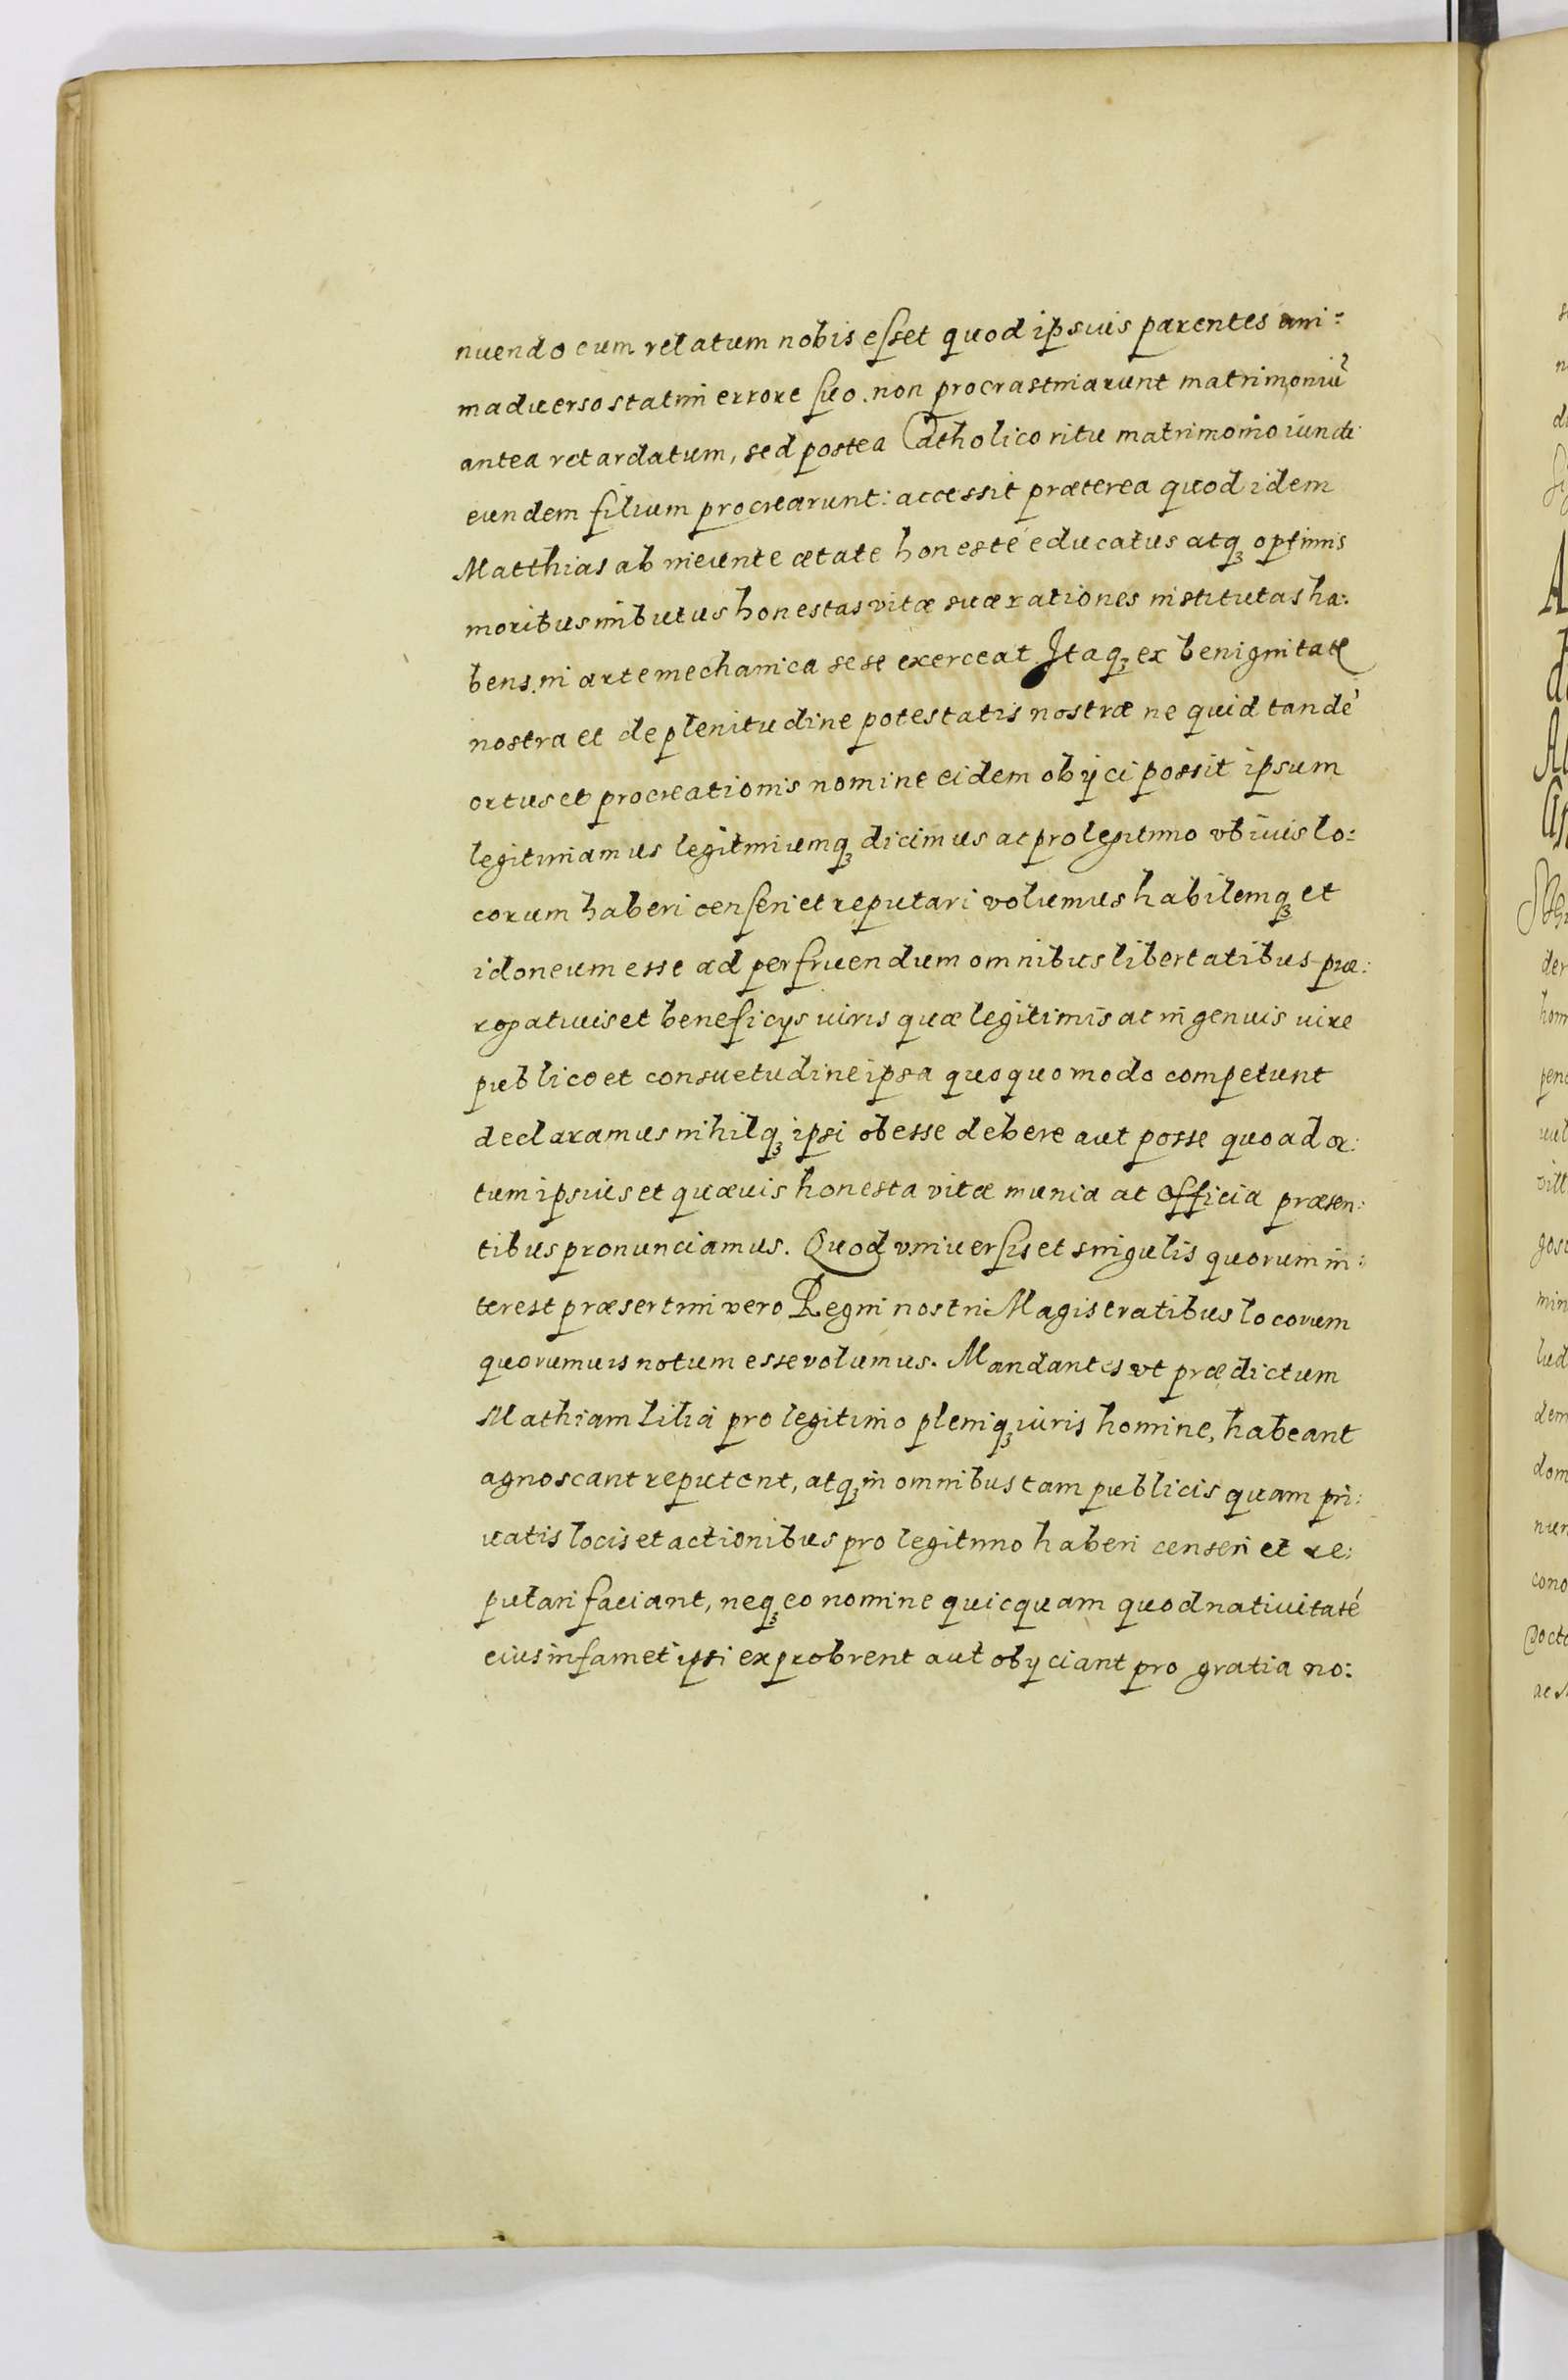 nuendo cum relatum nobis esset quod ipsius parentes ani:
maduerso statim errore suo. non procrastinarunt matrimoniũ
antea retardatum, sed postea Catholico ritu matrimonio iuncti
eundem filium procrearunt: accessit præterea quod idem
Matthias ab ineunte ætate honesté educatus atq₃ optimis
moribus imbutus honestas vitæ suæ rationes institutas ha:
bens. in arte mechanica sese exerceat Itaq₃ ex benignitate
nostra et de plenitudine potestatis nostræ ne quid tandẽ
ortus et procreationis nomine eidem obÿci possit ipsum
legitimamus legitimumq₃ dicimus ac pro legitimo vbiuis lo:
corum haberi censeri et reputari volumus habilemq₃ et
idoneum esse ad perfruendum omnibus libertatibus præ:
rogatiuis et beneficÿs viris quæ legitimis ac ingenuis iure
publico et consuetudine ipsa quoquomodo competunt
declaramus nihilq₃ ipsi obesse debere aut posse quoad or:
tum ipsius et quæuis honesta vitæ munia ac officia præsen:
tibus pronunciamus. Quod vniuersis et singulis quorum in:
terest præsertim vero Regni nostri Magistratibus locorum
quorumuis notum esse volumus. Mandantes vt prædictum
Mathiam Lilia pro legitimo pleniq₃ iuris homine, habeant
agnoscant reputent, atq₃ in omnibus tam publicis quam pri:
uatis locis et actionibus pro legitimo haberi censeri et re:
putari faciant, neq₃ eo nomine quicquam quod natiuitatẽ
eius infamet ipsi exprobrent aut obÿciant pro gratia no: